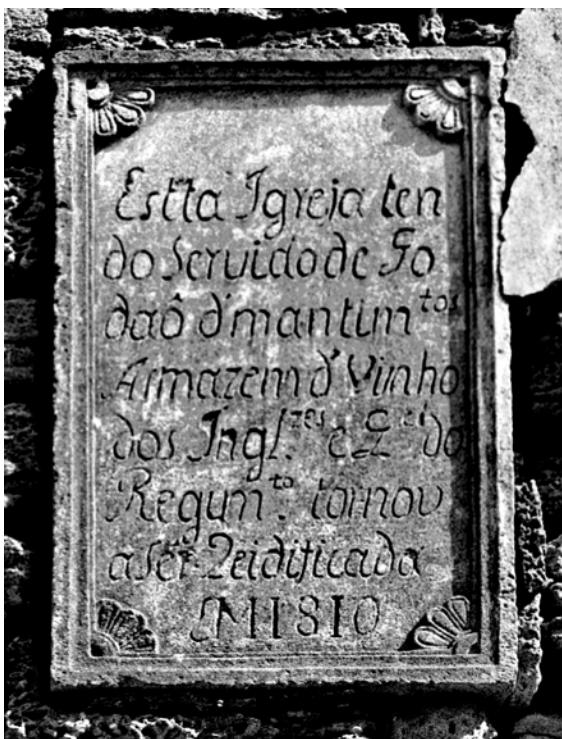 Estta Igreja ten
do Servido de Go
daô d'mantim.tos
Armazem d'Vinho
dos Ingl.zes e Q.el do
Regim.to tornou
a Ser Reidificada
EM 1810